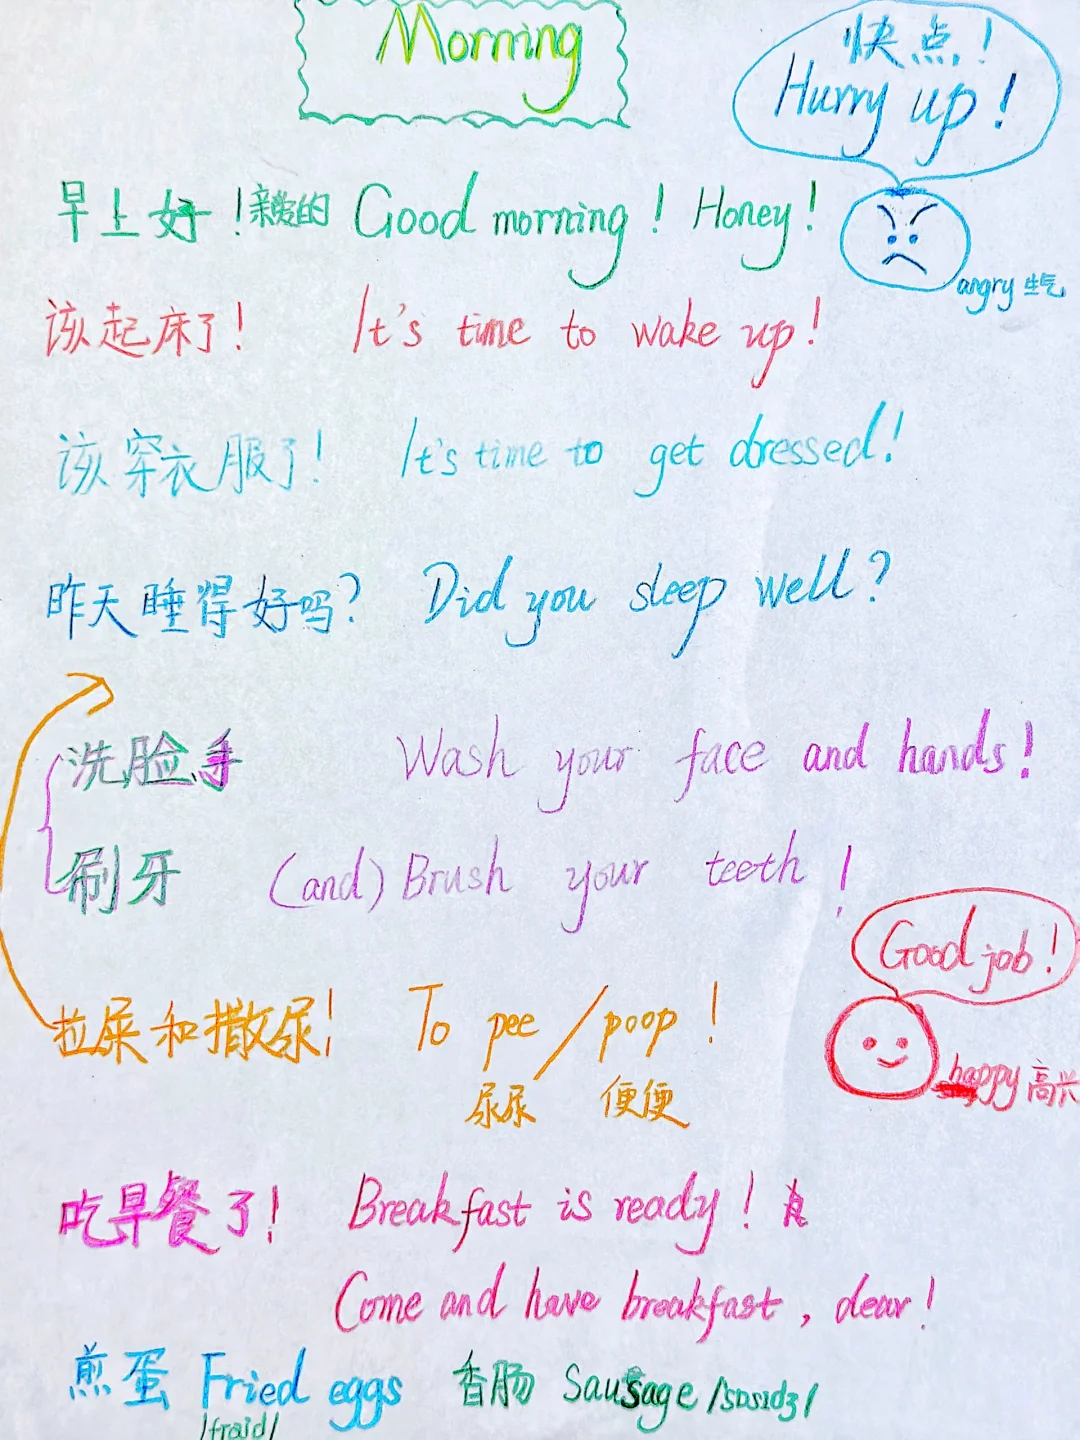 Morning
快点!
Hurry up!
早上好!亲爱的 Good morning! Honey!
angry 生气
该起床了! It's time to wake up!
该穿衣服了! It's time to get dressed!
昨天睡得好吗? Did you sleep well?
洗脸、手 Wash your face and hands!
刷牙 (and) Brush your teeth!
Good job!
拉屎和撒尿! To pee/poop!
happy 高兴
尿尿 便便
吃早餐了! Breakfast is ready!
Come and have breakfast, dear!
煎蛋 Fried eggs 香肠 Sausage /sɒsɪdʒ/
/fraid/